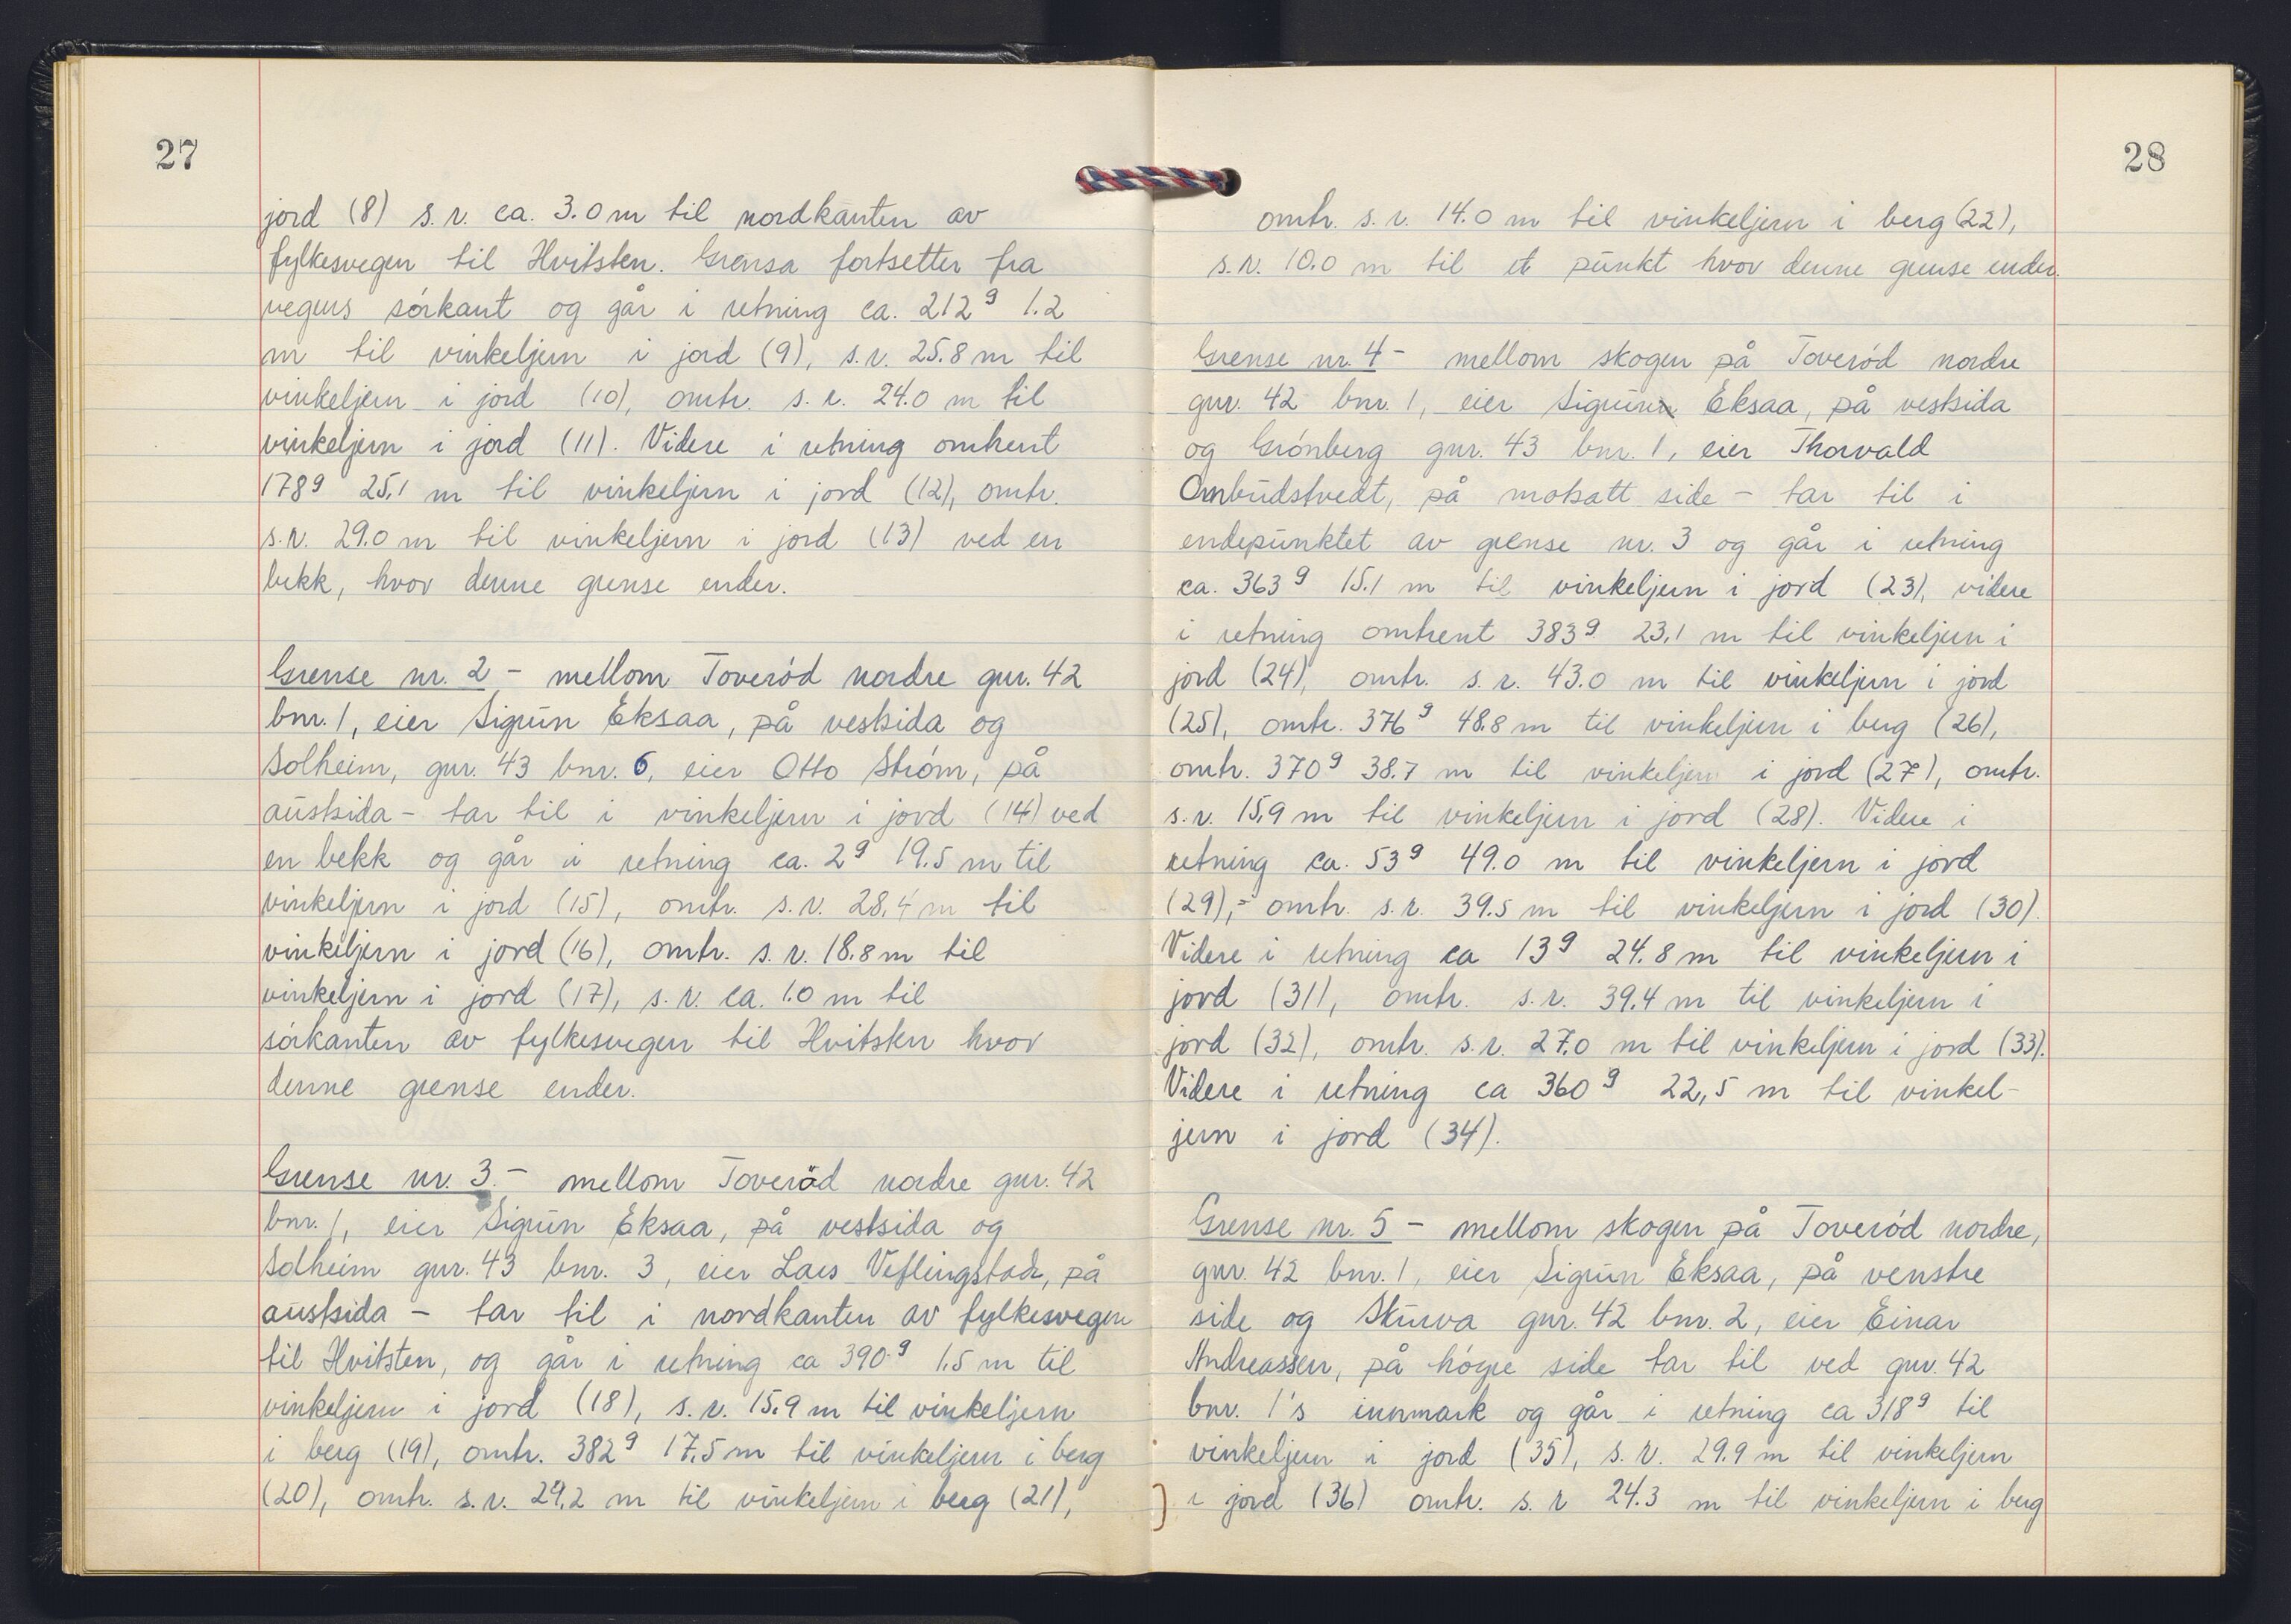 27
jord (8) s.r. ca. 3.0 m til nordkanten av
fylkesvegen til Hvitsten. Grensa fortsetter fra
vegens sørkant og går i retning ca. 212 g 1.2
m til vinkeljern i jord (9), s.r. 25.8 m til
vinkeljern i jord (10), omtr. s.r. 24.0 m til
vinkeljern i jord (11). Videre i retning omtrent
178 g 25,1 m til vinkeljern i jord (12), omtr.
s.r. 29.0 m til vinkeljern i jord (13) ved en
bekk, hvor denne grense ender.
Grense nr. 2 - mellom Toverød nordre gnr. 42
bnr. 1, eier Sigrun Eksaa, på vestsida og
Solheim, gnr. 43 bnr. 6, eier Otto Strøm, på
austsida - tar til i vinkeljern i jord (14) ved
en bekk og går i retning ca. 2 g 19.5 m til
vinkeljern i jord (15), omtr. s.r. 28,4 m til
vinkeljern i jord (16), omtr. s.r. 18.8 m til
vinkeljern i jord (17), s.r. ca. 1.0 m til
sørkanten av fylkesvegen til Hvitsten hvor
denne grense ender.
Grense nr. 3. - mellom Toveröd nordre gnr. 42
bnr. 1, eier Sigrun Eksaa, på vestsida og
Solheim gnr. 43 bnr. 3, eier Lars Veflingstad, på
austsida - tar til i nordkanten av fylkesvegen
til Hvitsten, og går i retning ca 390 g 1.5 m til
vinkeljern i jord (18), s.r. 15.9 m til vinkeljern
i berg (19), omtr. 382 g 17.5 m til vinkeljern i berg
(20), omtr. s.r. 29,2 m til vinkeljern i berg (21),
28
omtr. s.r. 14.0 m til vinkeljern i berg (22),
s.r. 10.0 m til et punkt hvor denne grense ender.
Grense nr. 4 - mellom skogen på Toverød nordre
gnr. 42 bnr. 1, eier Sigrun Eksaa, på vestsida
og Grønberg gnr. 43 bnr. 1, eier Thorvald
Ombudstvedt, på motsatt side - tar til i
endepunktet av grense nr. 3 og går i retning
ca. 363 g 15.1 m til vinkeljern i jord (23), videre
i retning omtrent 383 g 23,1 m til vinkeljern i
jord (24), omtr. s.r. 43.0 m til vinkeljern i jord
(25), omtr. 376 g 48.8 m til vinkeljern i berg (26),
omtr. 370 g 38.7 m til vinkeljern i jord (27), omtr.
s.r. 15,9 m til vinkeljern i jord (28). Videre i
retning ca. 53 g 49.0 m til vinkeljern i jord
(29), - omtr. s.r. 39.5 m til vinkeljern i jord (30).
Videre i retning ca 13 g 24.8 m til vinkeljern i
jord (31), omtr. s.r. 39.4 m til vinkeljern i
jord (32), omtr. s.r. 27.0 m til vinkeljern i jord (33).
Videre i retning ca 360 g 22,5 m til vinkel-
jern i jord (34).
Grense nr. 5 - mellom skogen på Toverød nordre,
gnr. 42 bnr. 1, eier Sigrun Eksaa, på venstre
side og Skurva gnr. 42 bnr. 2, eier Einar
Andreassen, på høgre side tar til ved gnr. 42
bnr. 1's innmark og går i retning ca 318 g til
vinkeljern i jord (35), s.r. 29.9 m til vinkeljern
i jord (36) omtr. s.r 24.3 m til vinkeljern i berg